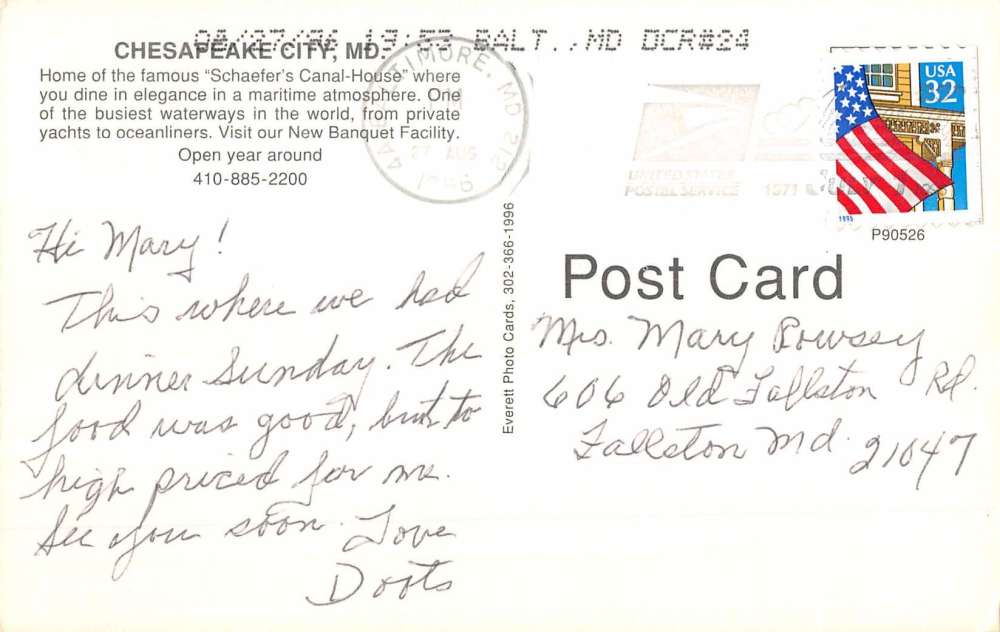 08/27/96 19:53 BALT., MD BCR#24
CHESAPEAKE CITY, MD.
Home of the famous "Schaefer's Canal-House" where
you dine in elegance in a maritime atmosphere. One
of the busiest waterways in the world, from private
yachts to oceanliners. Visit our New Banquet Facility.
Open year around
410-885-2200
BALTIMORE, MD 212
27 AUG
1996
UNITED STATES
POSTAL SERVICE
1971
JULY 1
USA
32
1995
P90526
Hi Mary!
This where we had
dinner Sunday. The
food was good, but to
high priced for me.
See you soon. Love
Doots
Everett Photo Cards, 302-366-1996
Post Card
Mrs. Mary Powsey
606 Old Fallston Rd.
Fallston Md. 21047